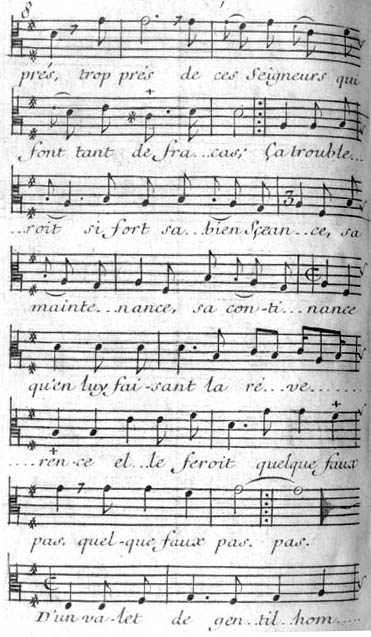 8
prés, trop prés de ces Seigneurs qui
font tant de fra..cas; Ça trouble...
..roit si fort sa..bien Sçean..ce, sa
mainte..nance, sa con-ti...nance
qu'en luy fai-sant la ré..ve.......
....ren-ce el..le feroit quelque faux
pas. quel-que faux pas. pas.
D'un va-let de gen..til..hom....